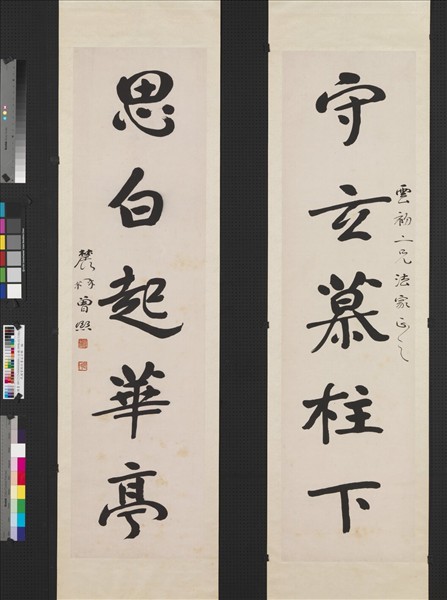 雲初二兄法家正之
守玄慕柱下
思白起華亭
農髯弟曾熙